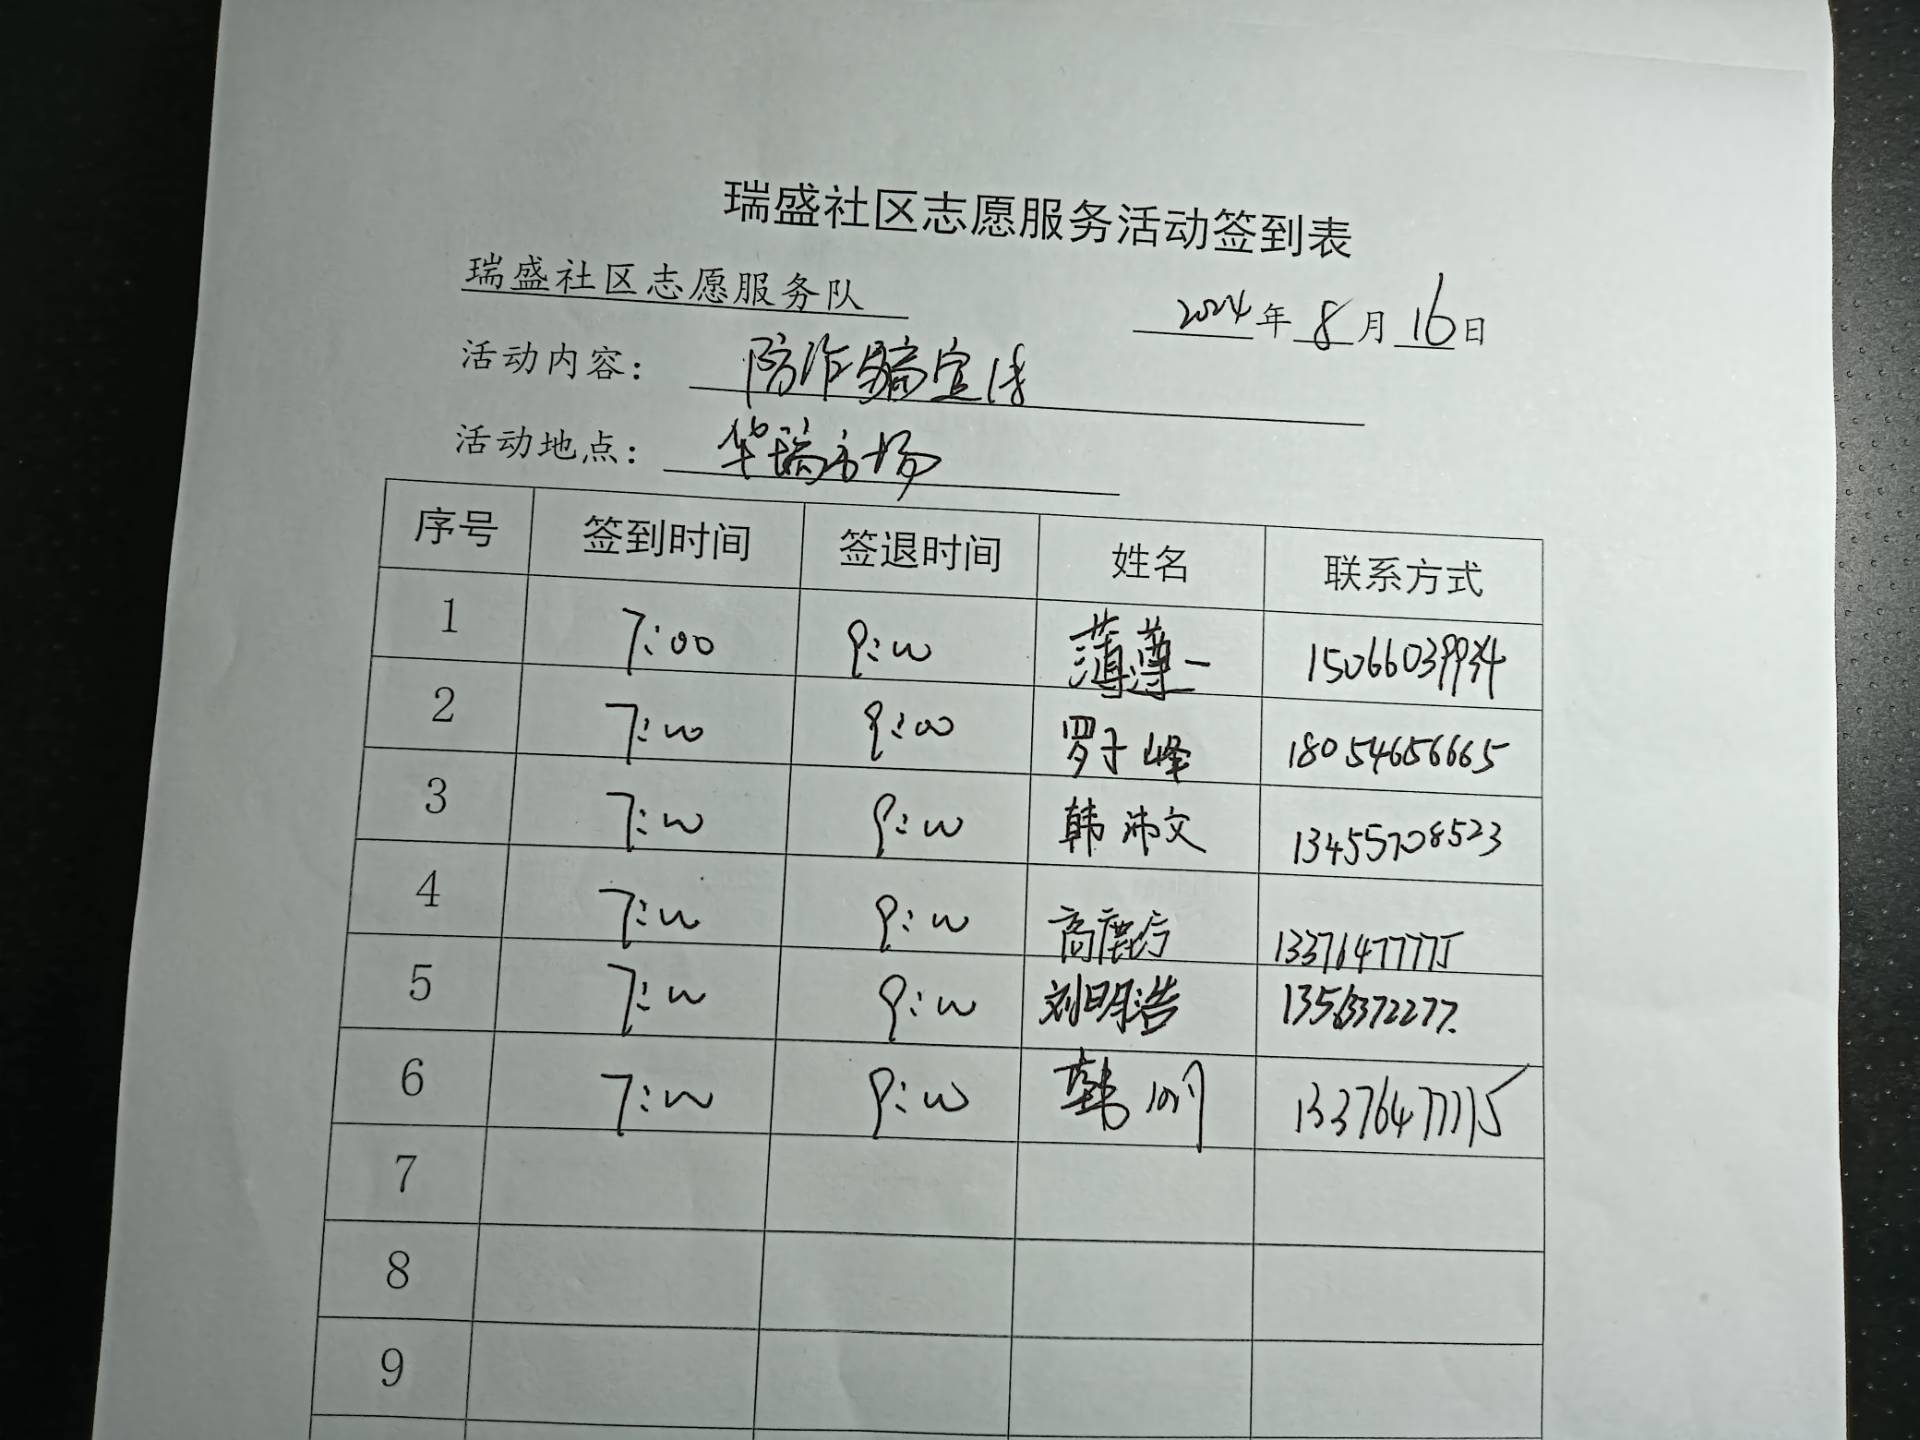 瑞盛社区志愿服务活动签到表
瑞盛社区志愿服务队 2024年8月16日
活动内容: 防诈骗宣传
活动地点: 华瑞市场
序号 签到时间 签退时间 姓名 联系方式
1 7:00 9:00 薄薄一 15066039934
2 7:00 9:00 罗于峰 18054656665
3 7:00 9:00 韩沛文 13455708523
4 7:00 9:00 高 13376477775
5 7:00 9:00 刘明浩
6 7:00 9:00 韩 13376477775
7
8
9